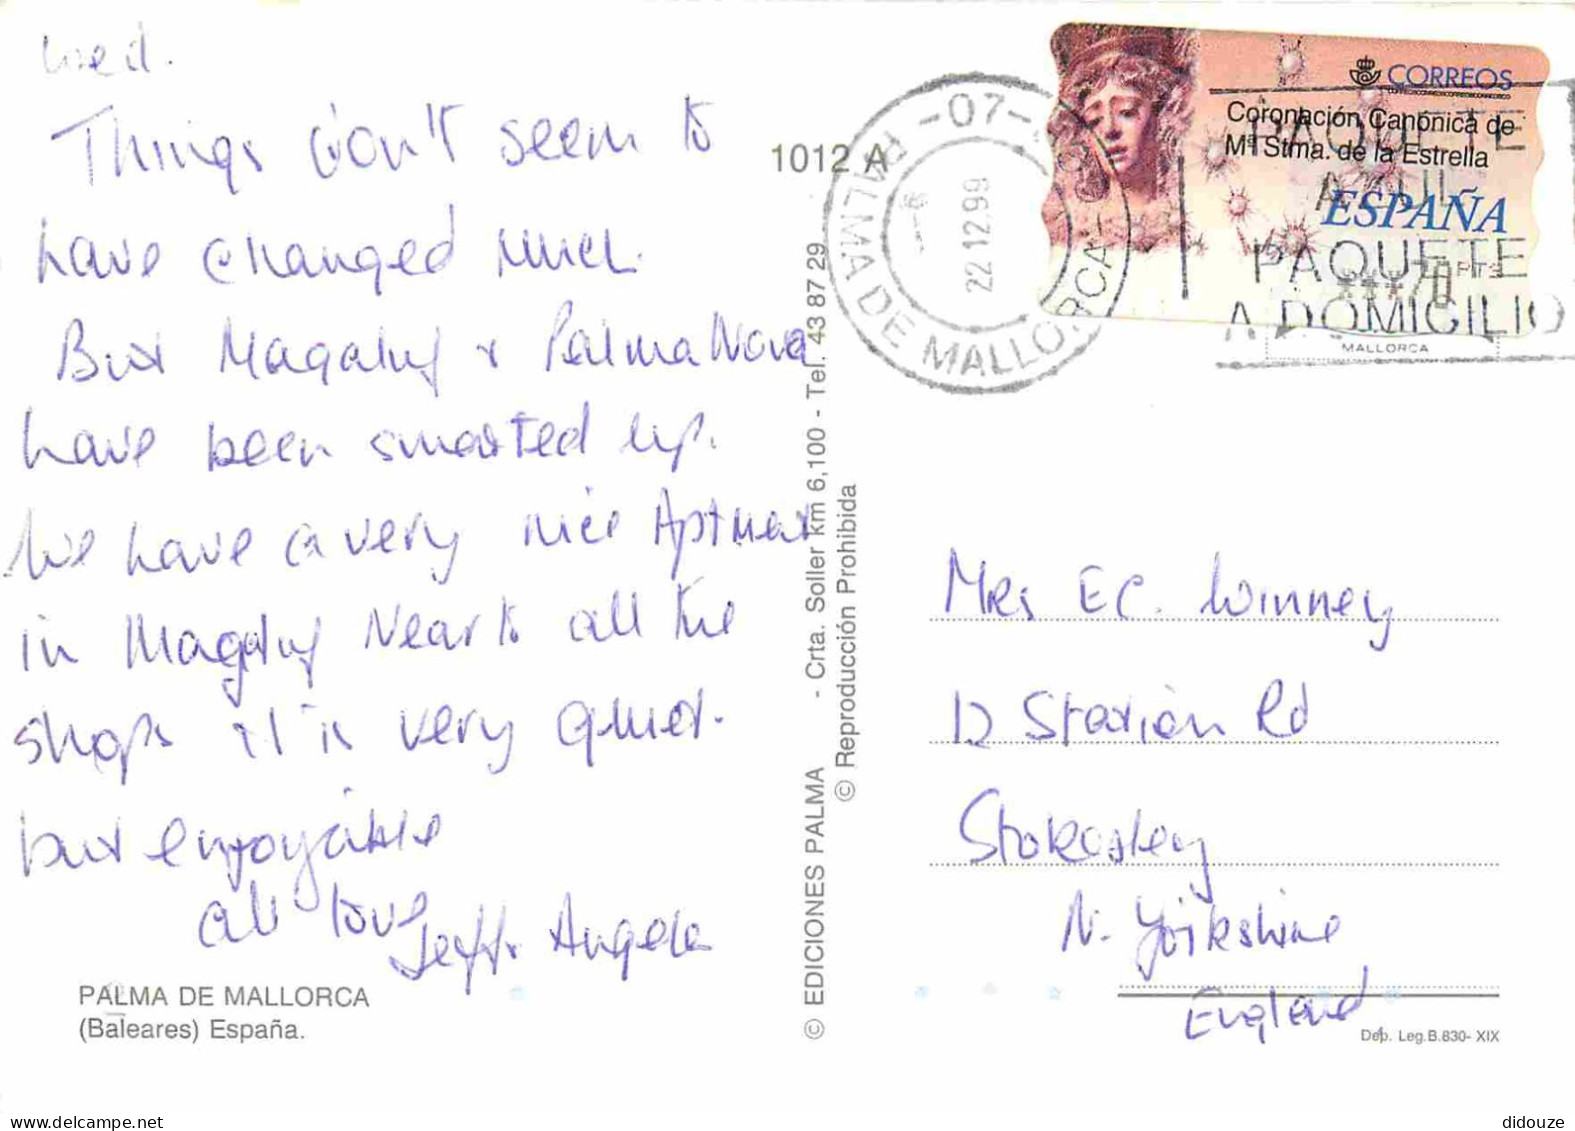 Wed.
Things don't seem to
have changed much.
But Magaluf & Palma Nova
have been smarted up.
We have a very nice Aptment
in Magaluf Near to all the
shops it is very quiet.
but enjoyable
all love Jeff. Angela
PALMA DE MALLORCA
(Baleares) España.
1012 A
© EDICIONES PALMA - Crta. Soller km 6,100 - Tel. 43 87 29
© Reproducción Prohibida
PALMA DE MALLORCA
-07-
22 12.99
CORREOS
Coronación Canónica de
Mª Stma. de la Estrella
ESPAÑA
***70 PTS
MALLORCA
PAQUETE
AZUL
PAQUETE
A DOMICILIO
Mrs EC. Winney
12 Station Rd
Stokesley
N. Yorkshire
England
Dep. Leg. B. 830- XIX
didouze